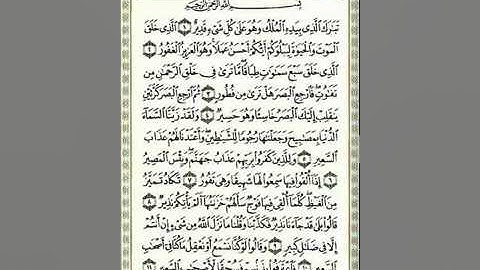 بِسْمِ اللَّهِ الرَّحْمَٰنِ الرَّحِيمِ
تَبَٰرَكَ ٱلَّذِى بِيَدِهِ ٱلْمُلْكُ وَهُوَ عَلَىٰ كُلِّ شَىْءٍ قَدِيرٌ ١ ٱلَّذِى خَلَقَ
ٱلْمَوْتَ وَٱلْحَيَوٰةَ لِيَبْلُوَكُمْ أَيُّكُمْ أَحْسَنُ عَمَلًا وَهُوَ ٱلْعَزِيزُ ٱلْغَفُورُ ٢
ٱلَّذِى خَلَقَ سَبْعَ سَمَٰوَٰتٍ طِبَاقًا مَّا تَرَىٰ فِى خَلْقِ ٱلرَّحْمَٰنِ مِن
تَفَٰوُتٍ فَٱرْجِعِ ٱلْبَصَرَ هَلْ تَرَىٰ مِن فُطُورٍ ٣ ثُمَّ ٱرْجِعِ ٱلْبَصَرَ كَرَّتَيْنِ
يَنقَلِبْ إِلَيْكَ ٱلْبَصَرُ خَاسِئًا وَهُوَ حَسِيرٌ ٤ وَلَقَدْ زَيَّنَّا ٱلسَّمَآءَ
ٱلدُّنْيَا بِمَصَٰبِيحَ وَجَعَلْنَٰهَا رُجُومًا لِّلشَّيَٰطِينِ وَأَعْتَدْنَا لَهُمْ عَذَابَ
ٱلسَّعِيرِ ٥ وَلِلَّذِينَ كَفَرُوا۟ بِرَبِّهِمْ عَذَابُ جَهَنَّمَ وَبِئْسَ ٱلْمَصِيرُ
٦ إِذَآ أُلْقُوا۟ فِيهَا سَمِعُوا۟ لَهَا شَهِيقًا وَهِىَ تَفُورُ ٧ تَكَادُ تَمَيَّزُ
مِنَ ٱلْغَيْظِ كُلَّمَآ أُلْقِىَ فِيهَا فَوْجٌ سَأَلَهُمْ خَزَنَتُهَآ أَلَمْ يَأْتِكُمْ نَذِيرٌ ٨
قَالُوا۟ بَلَىٰ قَدْ جَآءَنَا نَذِيرٌ فَكَذَّبْنَا وَقُلْنَا مَا نَزَّلَ ٱللَّهُ مِن شَىْءٍ إِنْ أَنتُمْ
إِلَّا فِى ضَلَٰلٍ كَبِيرٍ ٩ وَقَالُوا۟ لَوْ كُنَّا نَسْمَعُ أَوْ نَعْقِلُ مَا كُنَّا فِىٓ أَصْحَٰبِ
ٱلسَّعِيرِ ١٠ فَٱعْتَرَفُوا۟ بِذَنۢبِهِمْ فَسُحْقًا لِّأَصْحَٰبِ ٱلسَّعِيرِ ١١